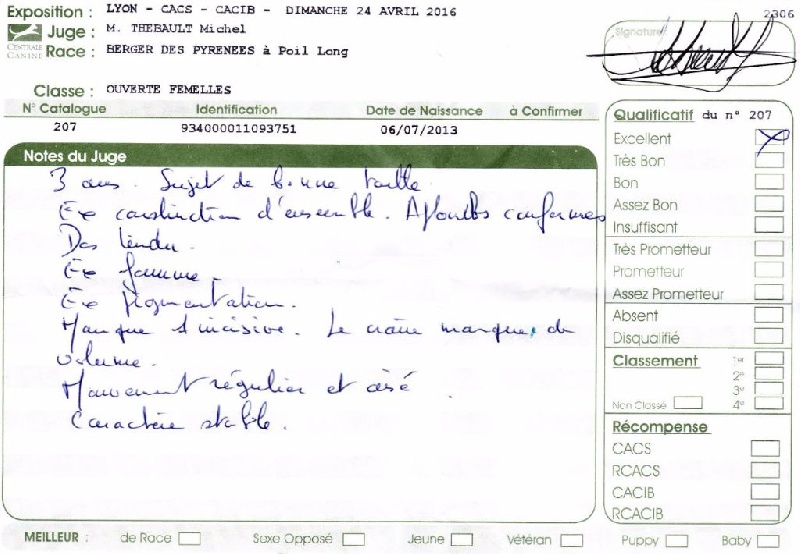 Exposition : LYON - CACS - CACIB - DIMANCHE 24 AVRIL 2016
2306
CENTRALE CANINE
Juge : M. THEBAULT Michel
Signature
Race : BERGER DES PYRENEES à Poil Long
Classe : OUVERTE FEMELLES
N° Catalogue Identification Date de Naissance à Confirmer
207 934000011093751 06/07/2013
Notes du Juge
3 ans. Sujet de bonne taille.
Exc construction d'ensemble. Aplombs conformes
Dos tendu.
Exc femme.
Exc pigmentation.
Manque 1 incisive. Le crâne manque de
volume.
Mouvement régulier et aisé
Caractère stable.
Qualificatif du n° 207
Excellent
Très Bon
Bon
Assez Bon
Insuffisant
Très Prometteur
Prometteur
Assez Prometteur
Absent
Disqualifié
Classement 1º
2º
3º
Non Classé 4º
Récompense
CACS
RCACS
CACIB
RCACIB
MEILLEUR : de Race Sexe Opposé Jeune Vétéran Puppy Baby